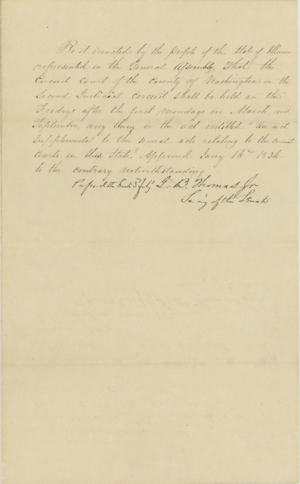 Be it enacted by the people of the State of Illinois
represented in the General Assembly That the
Circuit Court of the County of Washington in the
Second Judicial Circuit shall be held on the
Fridays after the first mondays in March and
September any thing in the act entitled "An act
supplemental to the several acts relating to the
courts in this State" Approved Jany 16th 1836
to the contrary notwithstanding
J. B. Thomas Jr
Sec'y of the Senate